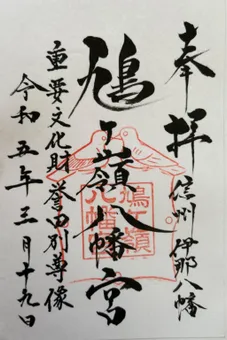 奉拝
信州 伊那八幡
鳩ヶ嶺八幡宮
鳩ヶ嶺
八幡宮
重要文化財誉田別尊像
令和五年三月十九日